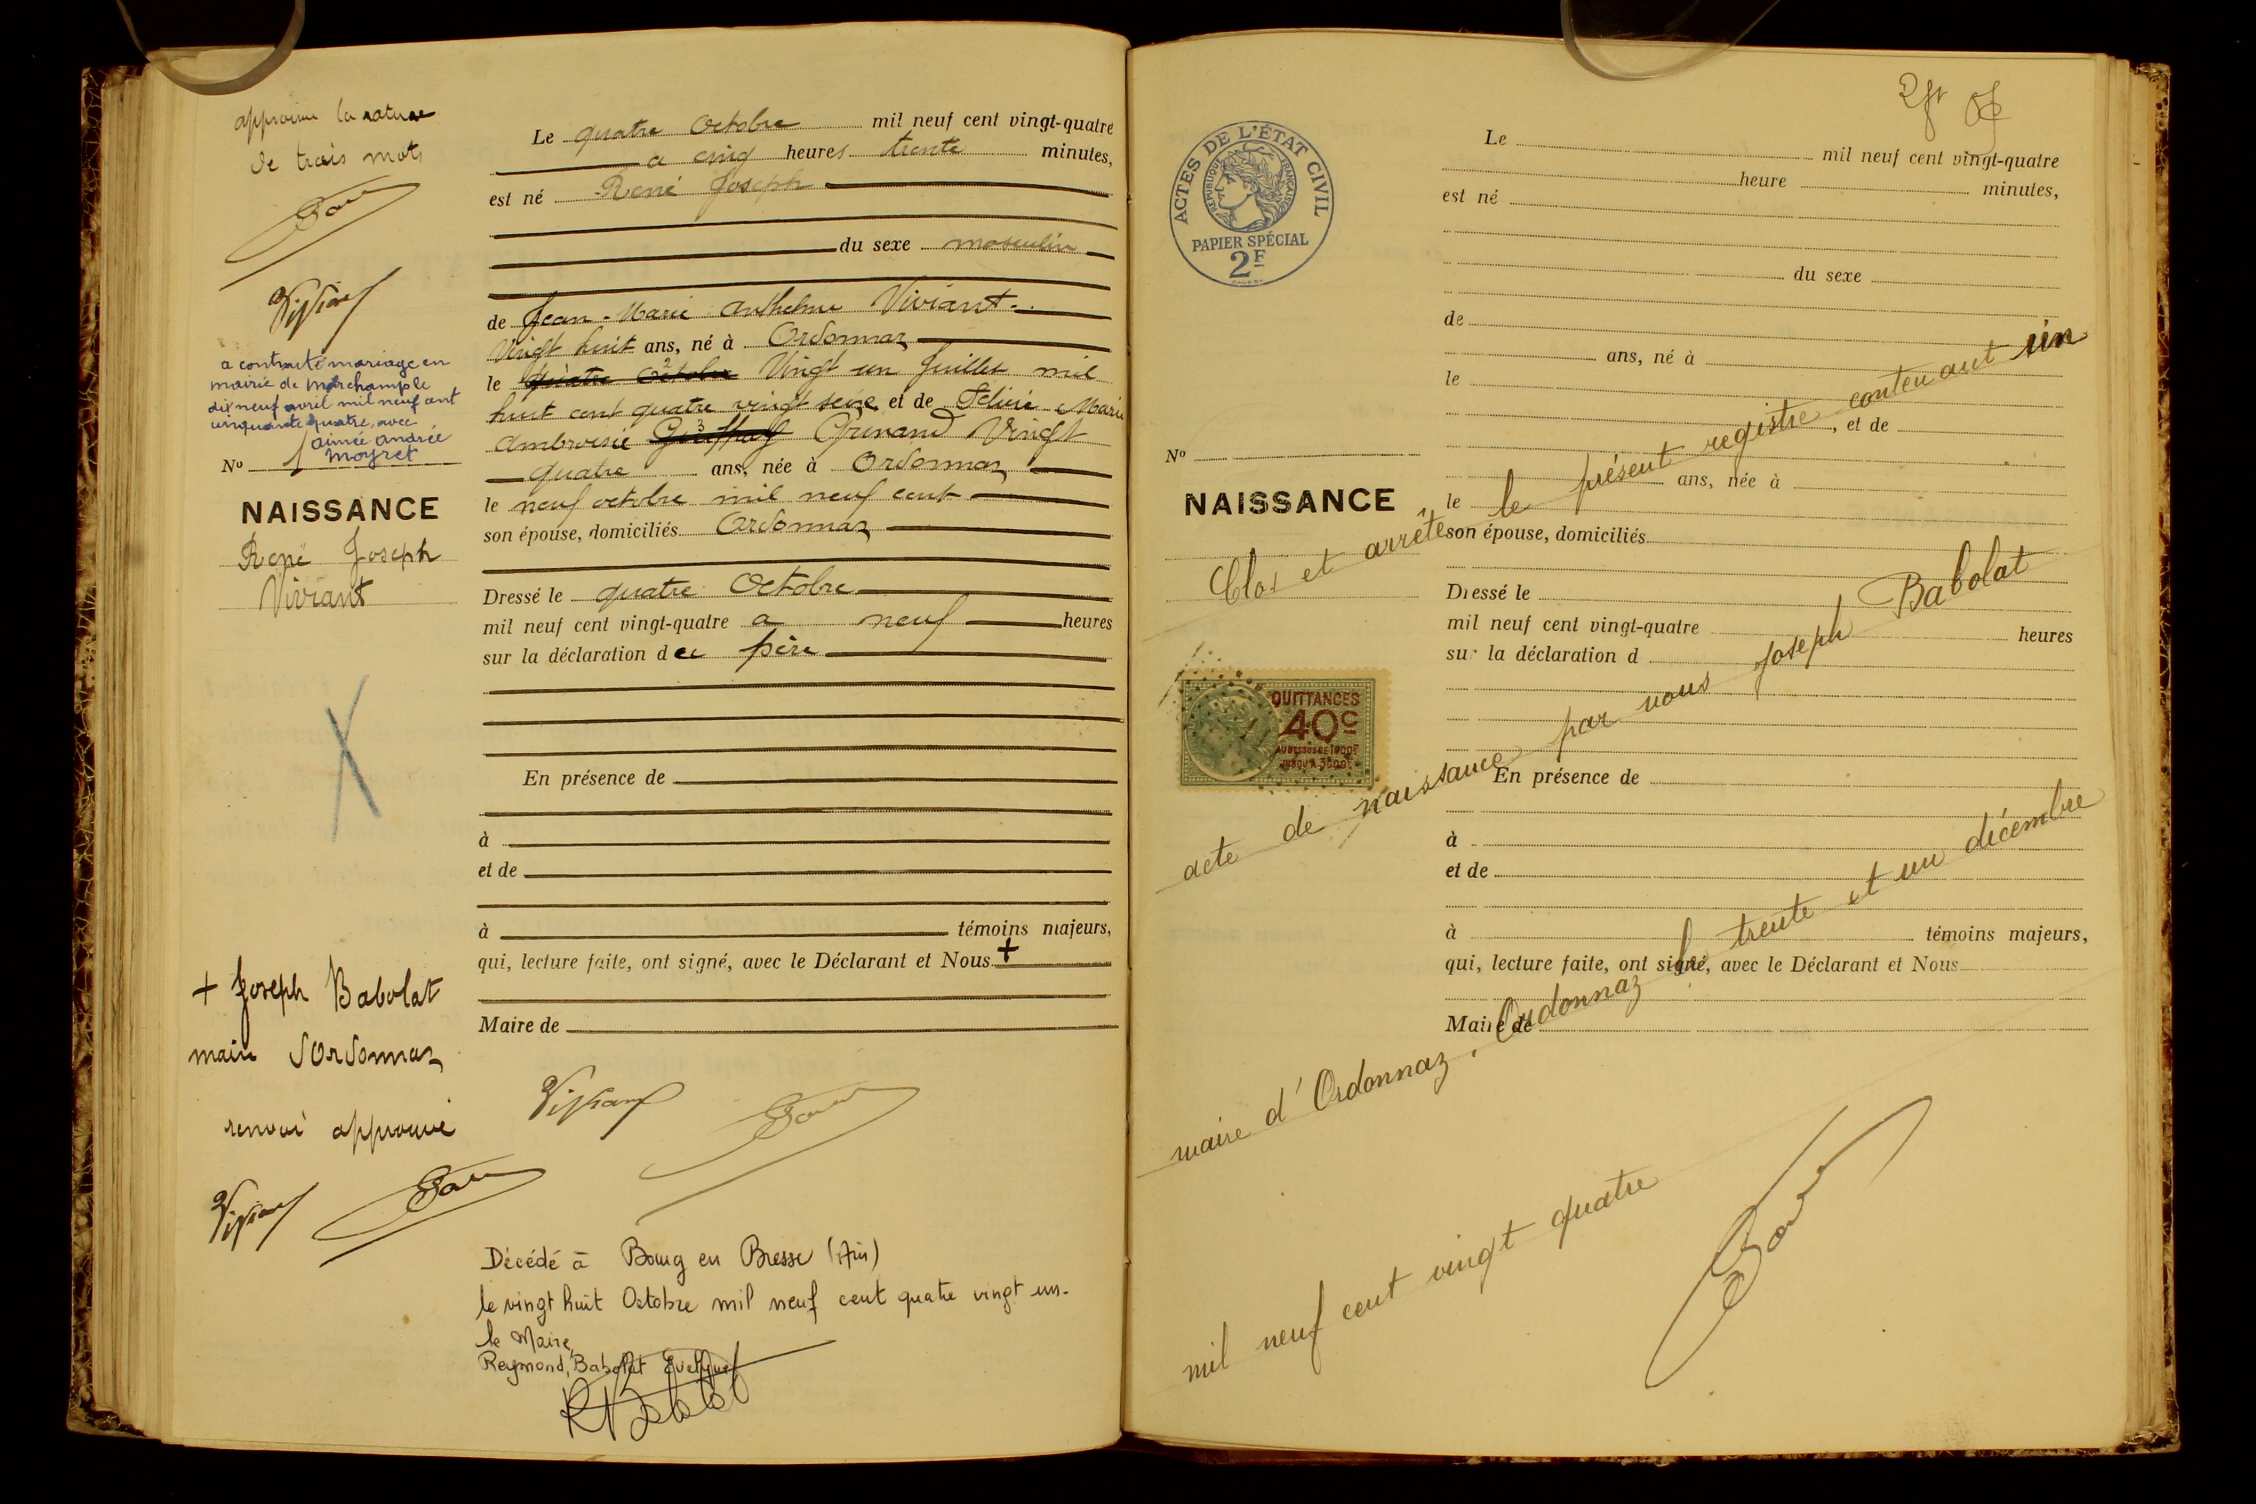 approuvé la rature
de trois mots
a contracté mariage en
mairie de Marchamp le
dix neuf avril mil neuf cent
cinquante quatre, avec
Aimée Andrée
Moyret
No 1
NAISSANCE
René Joseph
Viviant
+ Joseph Babolat
maire d'Ordonnaz
renvoi approuvé
Le quatre Octobre mil neuf cent vingt-quatre
a cinq heures trente minutes,
est né René Joseph
du sexe masculin
de Jean-Marie Anthelme Viviant
Vingt huit ans, né à Ordonnaz
le quatre Octobre Vingt un Juillet mil
huit cent quatre vingt seize et de Félicie Marie
Ambroisie Grinand Vingt
quatre ans, née à Ordonnaz
le neuf octobre mil neuf cent
son épouse, domiciliés Ordonnaz
Dressé le quatre Octobre
mil neuf cent vingt-quatre a neuf heures
sur la déclaration du père
En présence de
à
et de
à témoins majeurs,
qui, lecture faite, ont signé, avec le Déclarant et Nous +
Maire de
Viviant
Décédé à Bourg en Bresse (Ain)
le vingt huit Octobre mil neuf cent quatre vingt un.
le Maire,
Reymond, Babolat Evelyne
ACTES DE L'ÉTAT CIVIL
RÉPUBLIQUE FRANÇAISE
PAPIER SPÉCIAL
2F
No
NAISSANCE
QUITTANCES
40c
AU DESSUS DE 1000F
JUSQU'A 3000F
Le mil neuf cent vingt-quatre
heure minutes,
est né
du sexe
de
ans, né à
le
, et de
ans, née à
le
son épouse, domiciliés
Dressé le
mil neuf cent vingt-quatre heures
sur la déclaration d
En présence de
à
et de
à témoins majeurs,
qui, lecture faite, ont signé, avec le Déclarant et Nous
Maire de
Clos et arrêté le présent registre contenant un
acte de naissance par nous Joseph Babolat
maire d'Ordonnaz. Ordonnaz le trente et un décembre
mil neuf cent vingt quatre